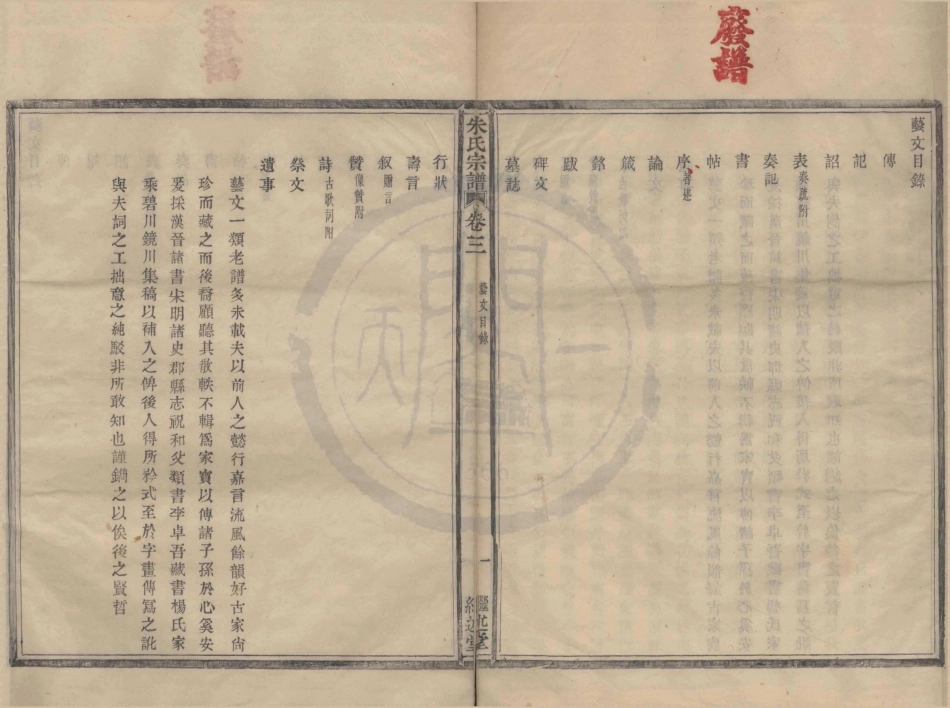 廢譜
藝文目錄
傳
記
詔
表奏疏附
奏記
書
帖
序著述
論文
箴
銘
跋
碑文
墓誌
朱氏宗譜
卷三
藝文目錄
一
行狀
壽言
叙贈言
贊像贊附
詩古歌詞附
祭文
遺事
藝文一類老譜多未載夫以前人之懿行嘉言流風餘韻好古家尙
珍而藏之而後裔顧聽其散軼不輯爲家寶以傳諸子孫於心奚安
爰採漢晉諸書宋明諸史郡縣志祝和父類書李卓吾藏書楊氏家
乘碧川鏡川集稿以補入之俾後人得所矜式至於字畫傳寫之訛
與夫詞之工拙意之純駁非所敢知也謹鐫之以俟後之賢哲